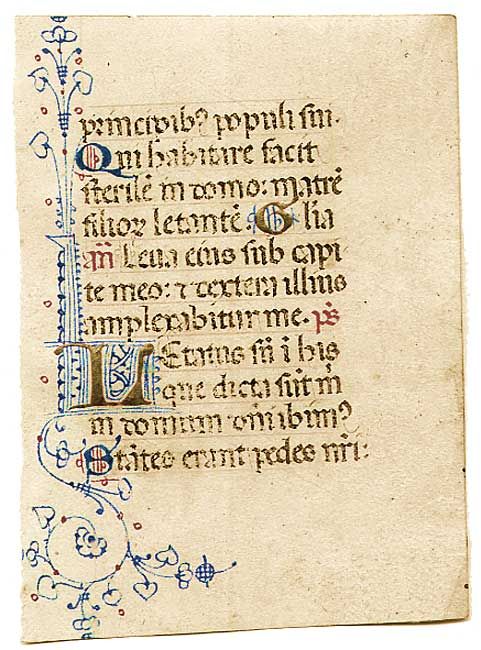 principib⁹ populi sui.
Qui habitare facit
sterilē in domo: matrē
filioꝝ letantē. Glīa
an̄ Leua eius sub capi
te meo: ⁊ dextera illius
amplexabitur me. ps̄
LEtatus sū ī his
que dicta sūt m̄
in domum dn̄i ibim⁹
Stātes erant pedes nr̄i: